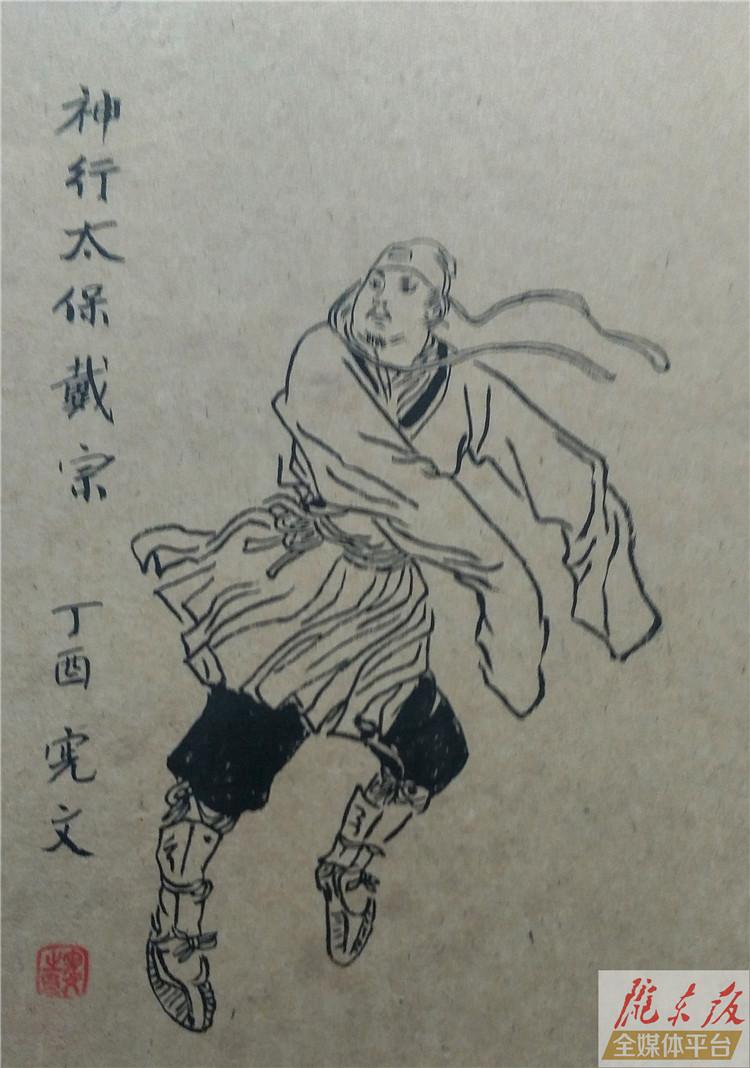 神行太保戴宗
丁酉 宪文
陇东报
全媒体平台